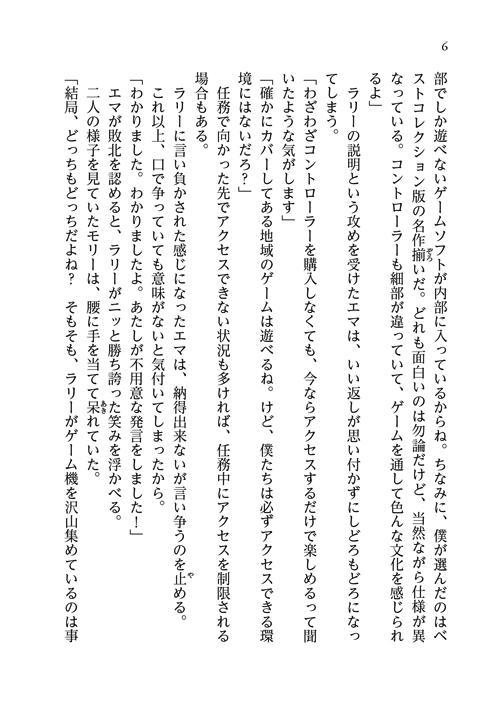 6
部でしか遊べないゲームソフトが内部に入っているからね。ちなみに、僕が選んだのはベ
ストコレクション版の名作揃いだ。どれも面白いのは勿論だけど、当然ながら仕様が異
ぞろ
なっている。コントローラーも細部が違っていて、ゲームを通して色んな文化を感じられ
るよ」
ラリーの説明という攻めを受けたエマは、いい返しが思い付かずにしどろもどろになっ
てしまう。
「わざわざコントローラーを購入しなくても、今ならアクセスするだけで楽しめるって聞
いたような気がします」
「確かにカバーしてある地域のゲームは遊べるね。けど、僕たちは必ずアクセスできる環
境にはないだろ?」
任務で向かった先でアクセスできない状況も多ければ、任務中にアクセスを制限される
場合もある。
ラリーに言い負かされた感じになったエマは、納得出来ないが言い争うのを止める。
や
これ以上、口で争っていても意味がないと気付いてしまったから。
「わかりました。わかりましたよ。あたしが不用意な発言をしました!」
エマが敗北を認めると、ラリーがニッと勝ち誇った笑みを浮かべる。
二人の様子を見ていたモリーは、腰に手を当てて呆れていた。
あき
「結局、どっちもどっちだよね? そもそも、ラリーがゲーム機を沢山集めているのは事